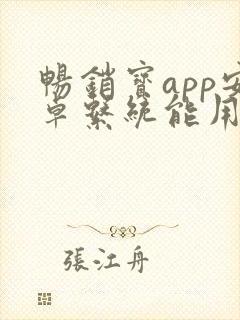 暢銷寶app安
卓繫統能用
張江舟